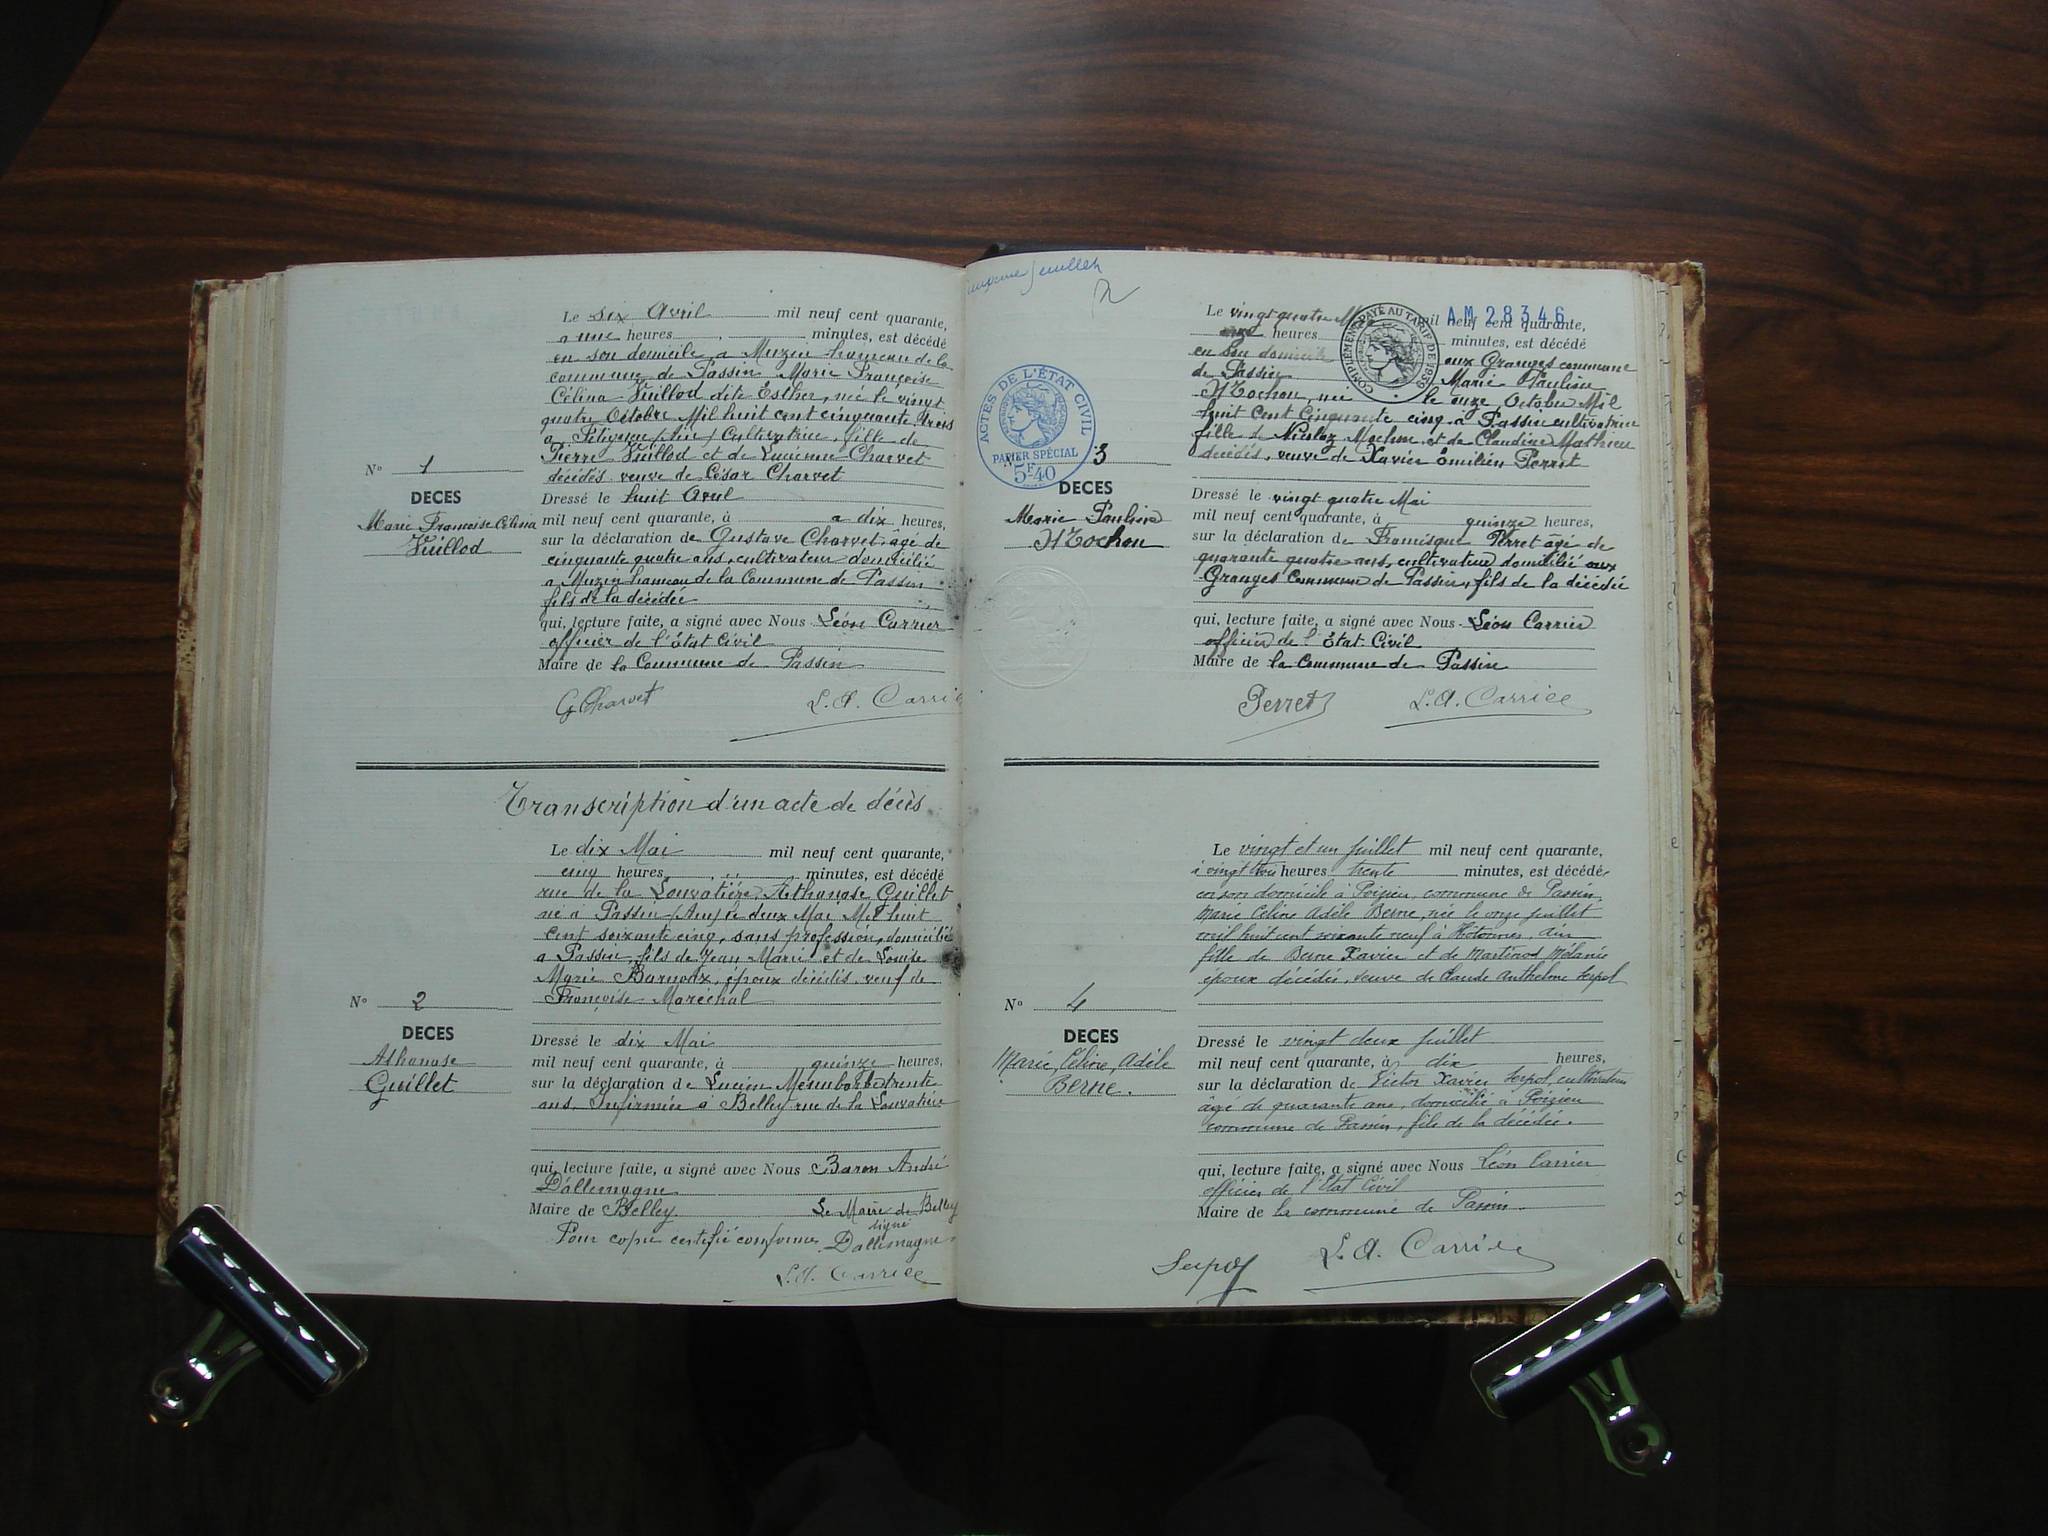 Le six Avril mil neuf cent quarante,
a une heures, minutes, est décédé
en son domicile, a Muzin hameau de la
commune de Passin Marie Françoise
Célina Vuillod dite Esther, née le vingt
quatre Octobre Mil huit cent cinquante trois
a (Ain) Cultivatrice, fille de
Pierre Vuillod et de Lucienne Charvet
décédés veuve de César Charvet
N° 1
DECES
Marie Françoise Célina
Vuillod
Dressé le huit Avril
mil neuf cent quarante, à a dix heures,
sur la déclaration de Gustave Charvet âgé de
cinquante quatre ans, cultivateur domicilié
a Muzin hameau de la Commune de Passin
fils de la décédée
qui, lecture faite, a signé avec Nous Léon Carrier
officier de l'État Civil
Maire de la Commune de Passin
G. Charvet L. A. Carrier
Transcription d'un acte de décès
Le dix Mai mil neuf cent quarante,
cinq heures, minutes, est décédé
rue de la Louvatière, Athanase Guillet
né à Passin (Ain) le deux Mai Mil huit
cent soixante cinq, sans profession, domicilié
a Passin, fils de Jean Marie et de Louise
Marie époux décédés, veuf de
Françoise Maréchal
N° 2
DECES
Athanase
Guillet
Dressé le dix Mai
mil neuf cent quarante, à quinze heures,
sur la déclaration de Lucien trente
ans, Infirmier à Belley rue de la Louvatière
qui, lecture faite, a signé avec Nous Baron André
Dallemagne
Maire de Belley. Le Maire de Belley
signé
Pour copie certifié conforme Dallemagne
L. A. Carrier
feuillet
AM 28346
COMPLÉMENT PAYÉ AU TARIF DE 1939
ACTES DE L'ÉTAT CIVIL
PAPIER SPÉCIAL
5F40
Le vingt quatre Mai mil neuf cent quarante,
heures minutes, est décédé
en son domicile aux Granges commune
de Passin Marie Pauline
Mochon, née le onze Octobre Mil
huit Cent Cinquante cinq à Passin cultivatrice
fille de Nicolas Mochon et de Claudine Mathieu
décédés, veuve de Xavier Emilien Perret
3
DECES
Marie Pauline
Mochon
Dressé le vingt quatre Mai
mil neuf cent quarante, à quinze heures,
sur la déclaration de Francisque Perret âgé de
quarante quatre ans, cultivateur domicilié aux
Granges Commune de Passin, fils de la décédée
qui, lecture faite, a signé avec Nous Léon Carrier
officier de l'État Civil
Maire de la Commune de Passin
Perret L. A. Carrier
Le vingt et un juillet mil neuf cent quarante,
à vingt trois heures trente minutes, est décédée
en son domicile à Poizieu, commune de Passin,
Marie Céline Adèle Berne, née le onze juillet
mil huit cent soixante neuf à Hotonnes, Ain
fille de Berne Xavier et de Martinod Mélanie
époux décédés, veuve de Claude Anthelme Serpol
N° 4
DECES
Marie, Céline, Adèle
Berne.
Dressé le vingt deux juillet
mil neuf cent quarante, à dix heures,
sur la déclaration de Victor Xavier Serpol, cultivateur
âgé de quarante ans, domicilié à Poizieu
commune de Passin, fils de la décédée.
qui, lecture faite, a signé avec Nous Léon Carrier
officier de l'Etat Civil
Maire de la commune de Passin.
Serpol L. A. Carrier